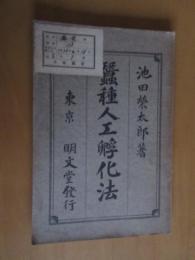 池田榮太郎著
蠶種人工孵化法
東京 明文堂發行